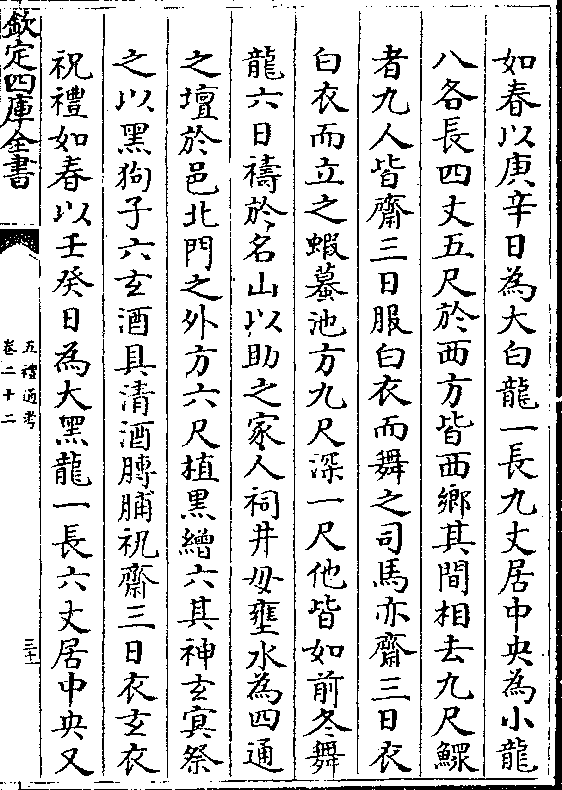 如春以庚辛日為大白龍一長九丈居中央為小龍
八各長四丈五尺於西方皆西鄉其間相去九尺鰥
者九人皆齋三日服白衣而舞之司馬亦齋三日衣
白衣而立之蝦蟇池方九尺深一尺他皆如前冬舞
龍六日禱於名山以助之家人祠井毋壅水為四通
之壇於邑北門之外方六尺植黑繒六其神玄冥祭
之以黑狗子六玄酒具清酒膊脯祝齋三日衣玄衣
祝禮如春以壬癸日為大黑龍一長六丈居中央又
欽定四庫全書
五禮通考
卷二十二
三十